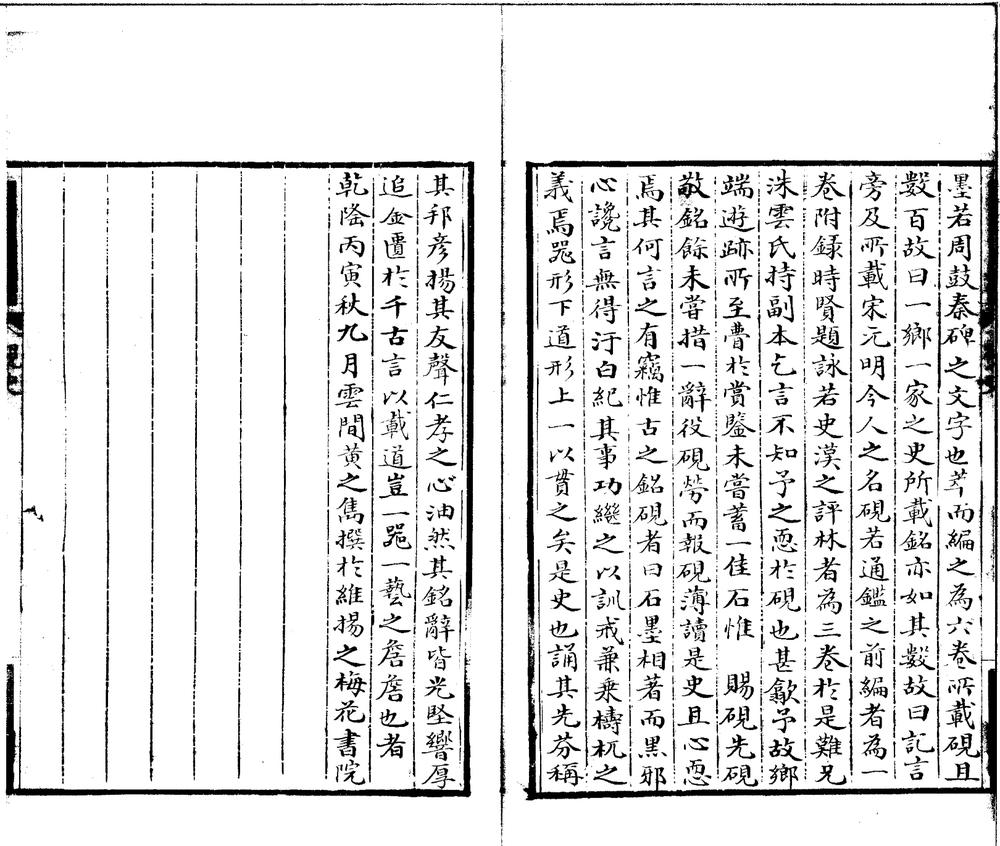 墨若周鼓秦碑之文字也萃而編之為六卷所載硯且
數百故曰一鄉一家之史所載銘亦如其數故曰記言
旁及所載宋元明今人之名硯若通鑑之前編者為一
卷附錄時賢題詠若史漢之評林者為三卷於是難兄
洙雲氏持副本乞言不知予之恧於硯也甚歙予故鄉
端遊跡所至曹於賞鑒未嘗蓄一佳石惟　賜硯先硯
敬銘餘未嘗措一辭役硯勞而報硯薄讀是史且心恧
焉其何言之有竊惟古之銘硯者曰石墨相著而黑邪
心讒言無得汙白紀其事功繼之以訓戒兼乘檮杌之
義焉器形下道形上一以貫之矣是史也誦其先芬稱
其邦彥揚其友聲仁孝之心油然其銘辭皆光堅響厚
追金匱於千古言以載道豈一器一藝之詹詹也者
乾隆丙寅秋九月雲間黃之雋撰於維揚之梅花書院